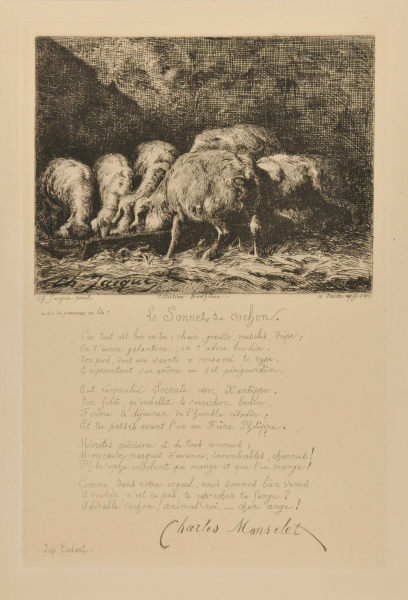 Ch. Jacque
Ch. Jacque pinxt.
Collection
Le Sonnet du cochon.
Car tout est bon en toi : chair, graisse, muscle, tripe ;
On t'aime galantine, on t'adore boudin.
Ton pied, dont une sainte a consacré le type,
Empruntant son arôme au sol périgourdin,
Eût réconcilié Socrate avec Xantippe.
Ton filet, qu'embellit le cornichon badin,
Forme le déjeuner de l'humble citadin ;
Et tu passes avant l'oie au Frère Philippe.
Mérites précieux et de tous reconnus !
Morceaux marqués d'avance, innombrables, charnus !
Philosophe indolent qui mange et que l'on mange !
Comme, dans notre orgueil, nous sommes bien venus
A vouloir, n'est-ce pas, te reprocher ta fange ?
Adorable cochon ! animal-roi, — cher ange !
Charles Monselet
Imp. Cadart.